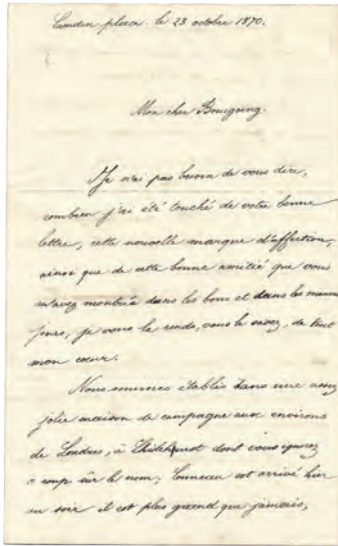 Camden-place. le 23 octobre 1870.
Mon cher Bourgoing.
Je n'ai pas besoin de vous dire,
combien j'ai été touché de votre bonne
lettre, cette nouvelle marque d'affection,
ainsi que de cette bonne amitié que vous
m'avez montrée dans les bons et dans les mauvais
jours, je vous la rends, vous le savez, de tout
mon coeur.
Nous sommes établis dans une assez
jolie maison de campagne aux environs
de Londres, à dont vous ignorez
à coup sûr le nom; Conneau est arrivé hier
au soir il est plus grand que jamais,